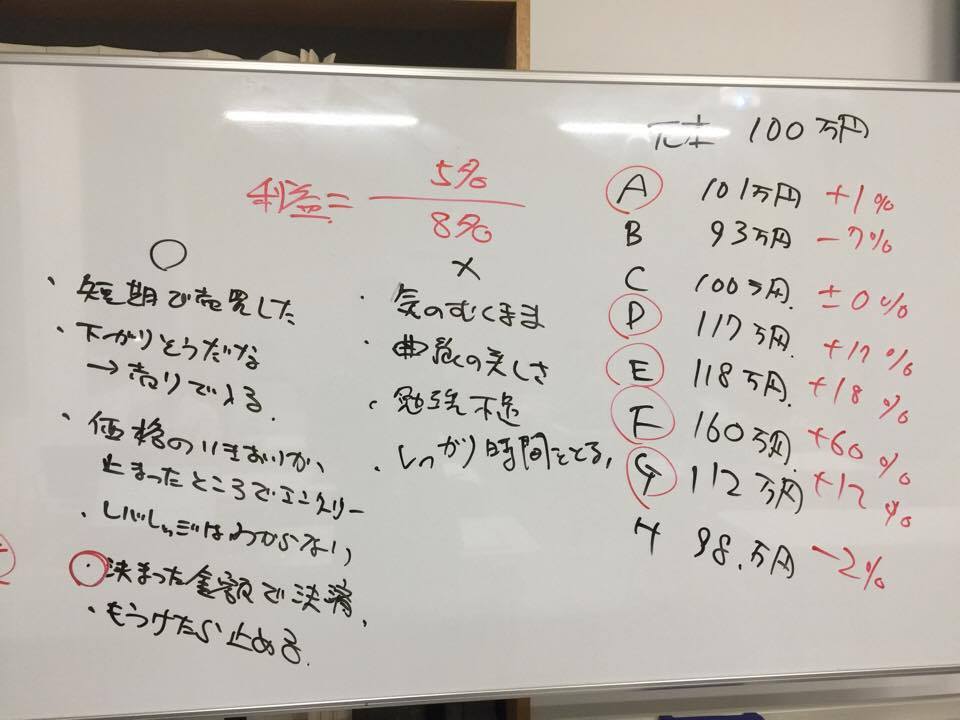 元手 100万円
A 101万円 +1%
B 93万円 -7%
C 100万円. ±0%
D 117万円. +17%
E 118万円. +18%
F 160万円. +60%
G 112万円 +12%
H 98.万円 -2%
5%
8%
○
・短期で売買した
・下がりそうだな
→売りで入る.
・価格のいきおいが、
止まったところでエントリー
・レバレッジはわからない、
・決まった金額で決済、
・もうけたら止める.
×
・気のむくまま
・の美しさ
・勉強不足
・しっかり時間をとる、